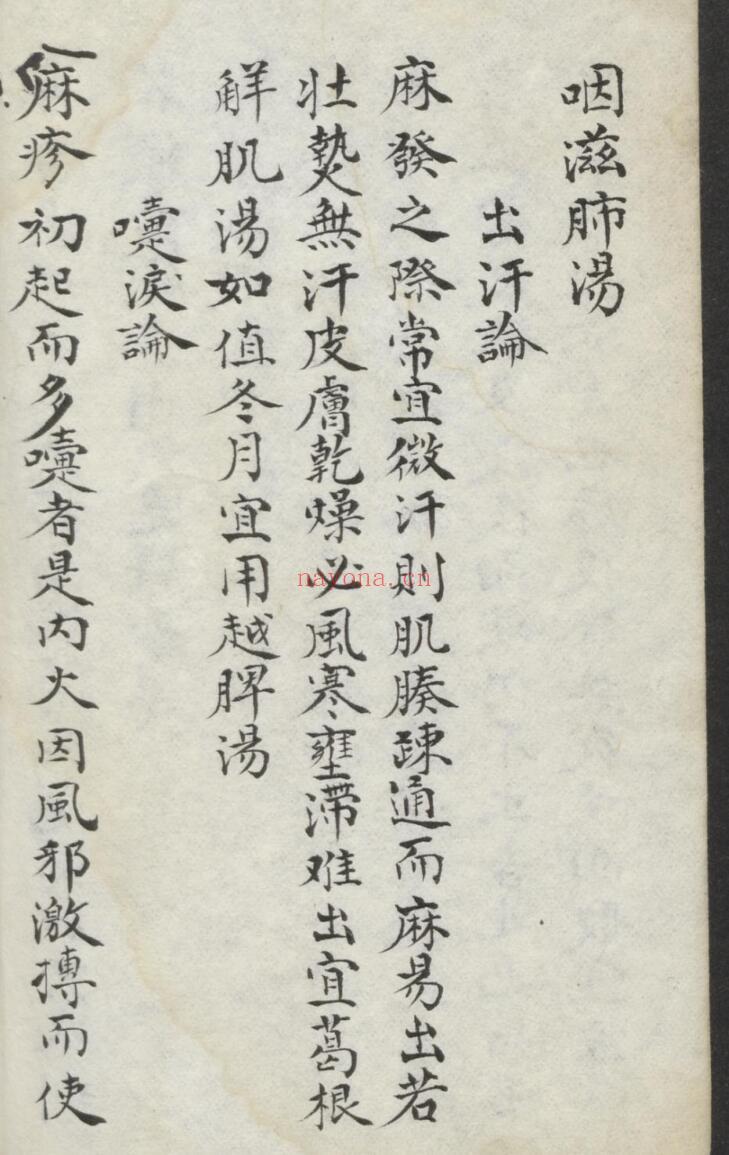 咽滋肺湯
出汗論
麻發之際常宜微汗則肌腠踈通而麻易出若
壯熱無汗皮膚乾燥必風寒壅滯难出宜葛根
觧肌湯如值冬月宜用越脾湯
嚏淚論
麻疹初起而多嚏者是内火因風邪激搏而使
nayona.cn